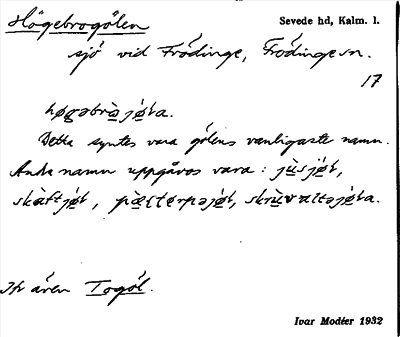 Högebrogölen
Sevede hd, Kalm. l.
sjö vid Frödinge, Frödinge sn.
17
høgəbrò̱jø̀ta.
Detta syntes vara gölens vanligaste namn.
Andra namn uppgåvos vara: jùsjø̀t,
skàftjø̀t, pæ̀ltərpəjø̀t, skrùvaltəjø̀ta.
Jfr även Togöl.
Ivar Modéer 1932